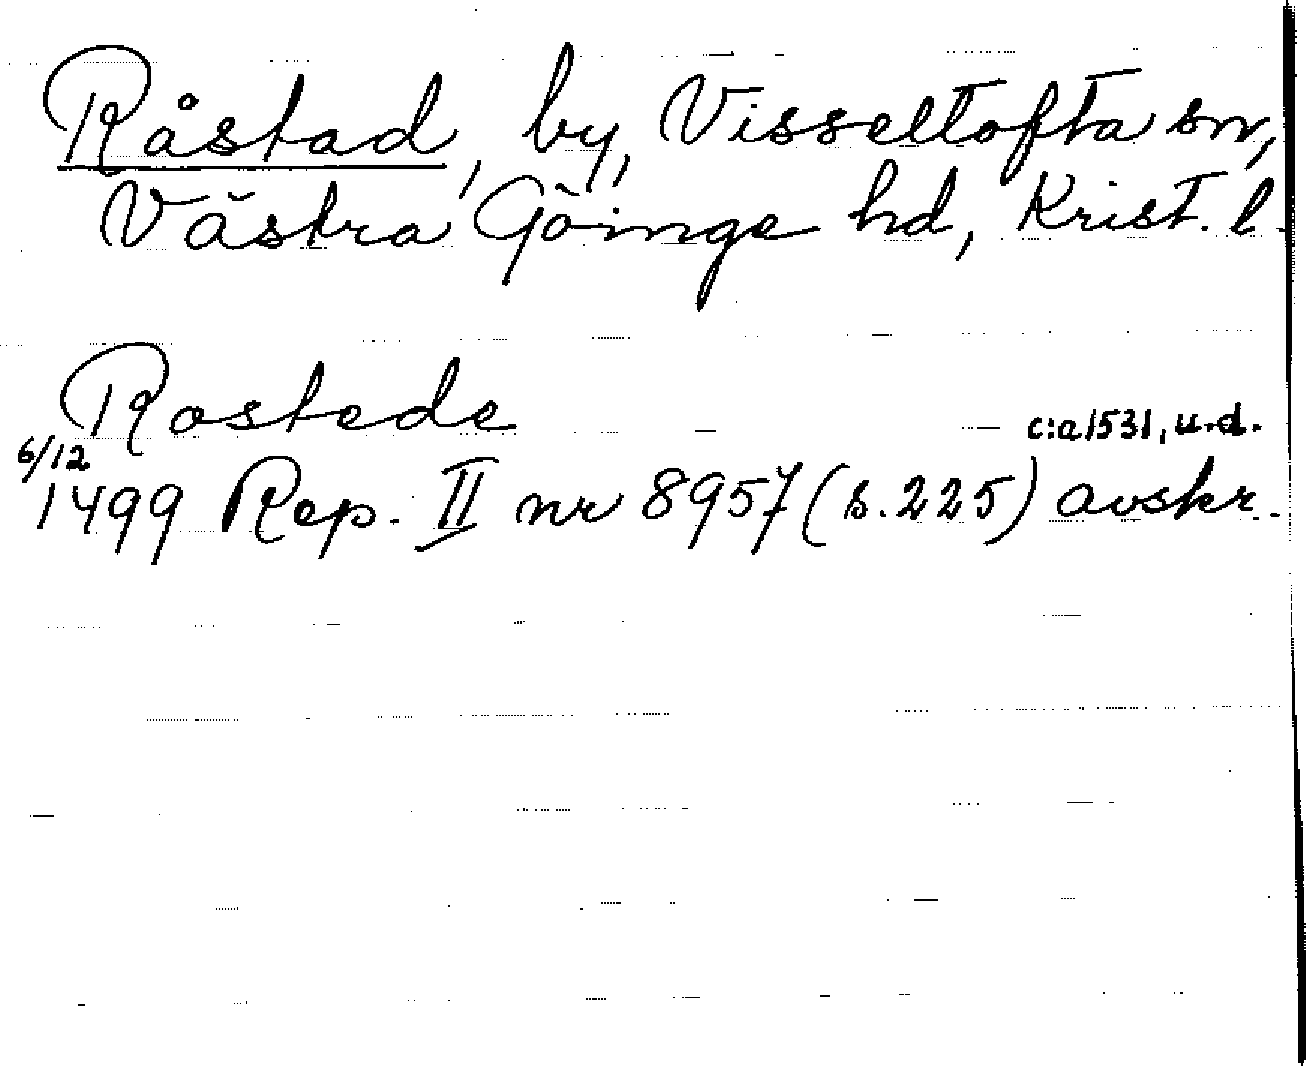 Råstad, by, Visseltofta sn,
Västra Göinge hd, Krist. l.
Rostede
c:a 1531, u.d.
6/12
1499 Rep. II nr 8957 (s. 225) avskr.